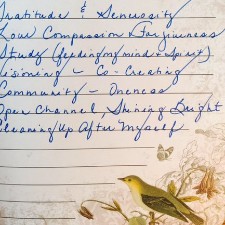 Gratitude & Generosity
Love Compassion & Forgiveness
Study (feeding my mind & spirit)
Visioning - Co-Creating
Community - Oneness
Open Channel, Shining Bright
Cleaning Up After Myself